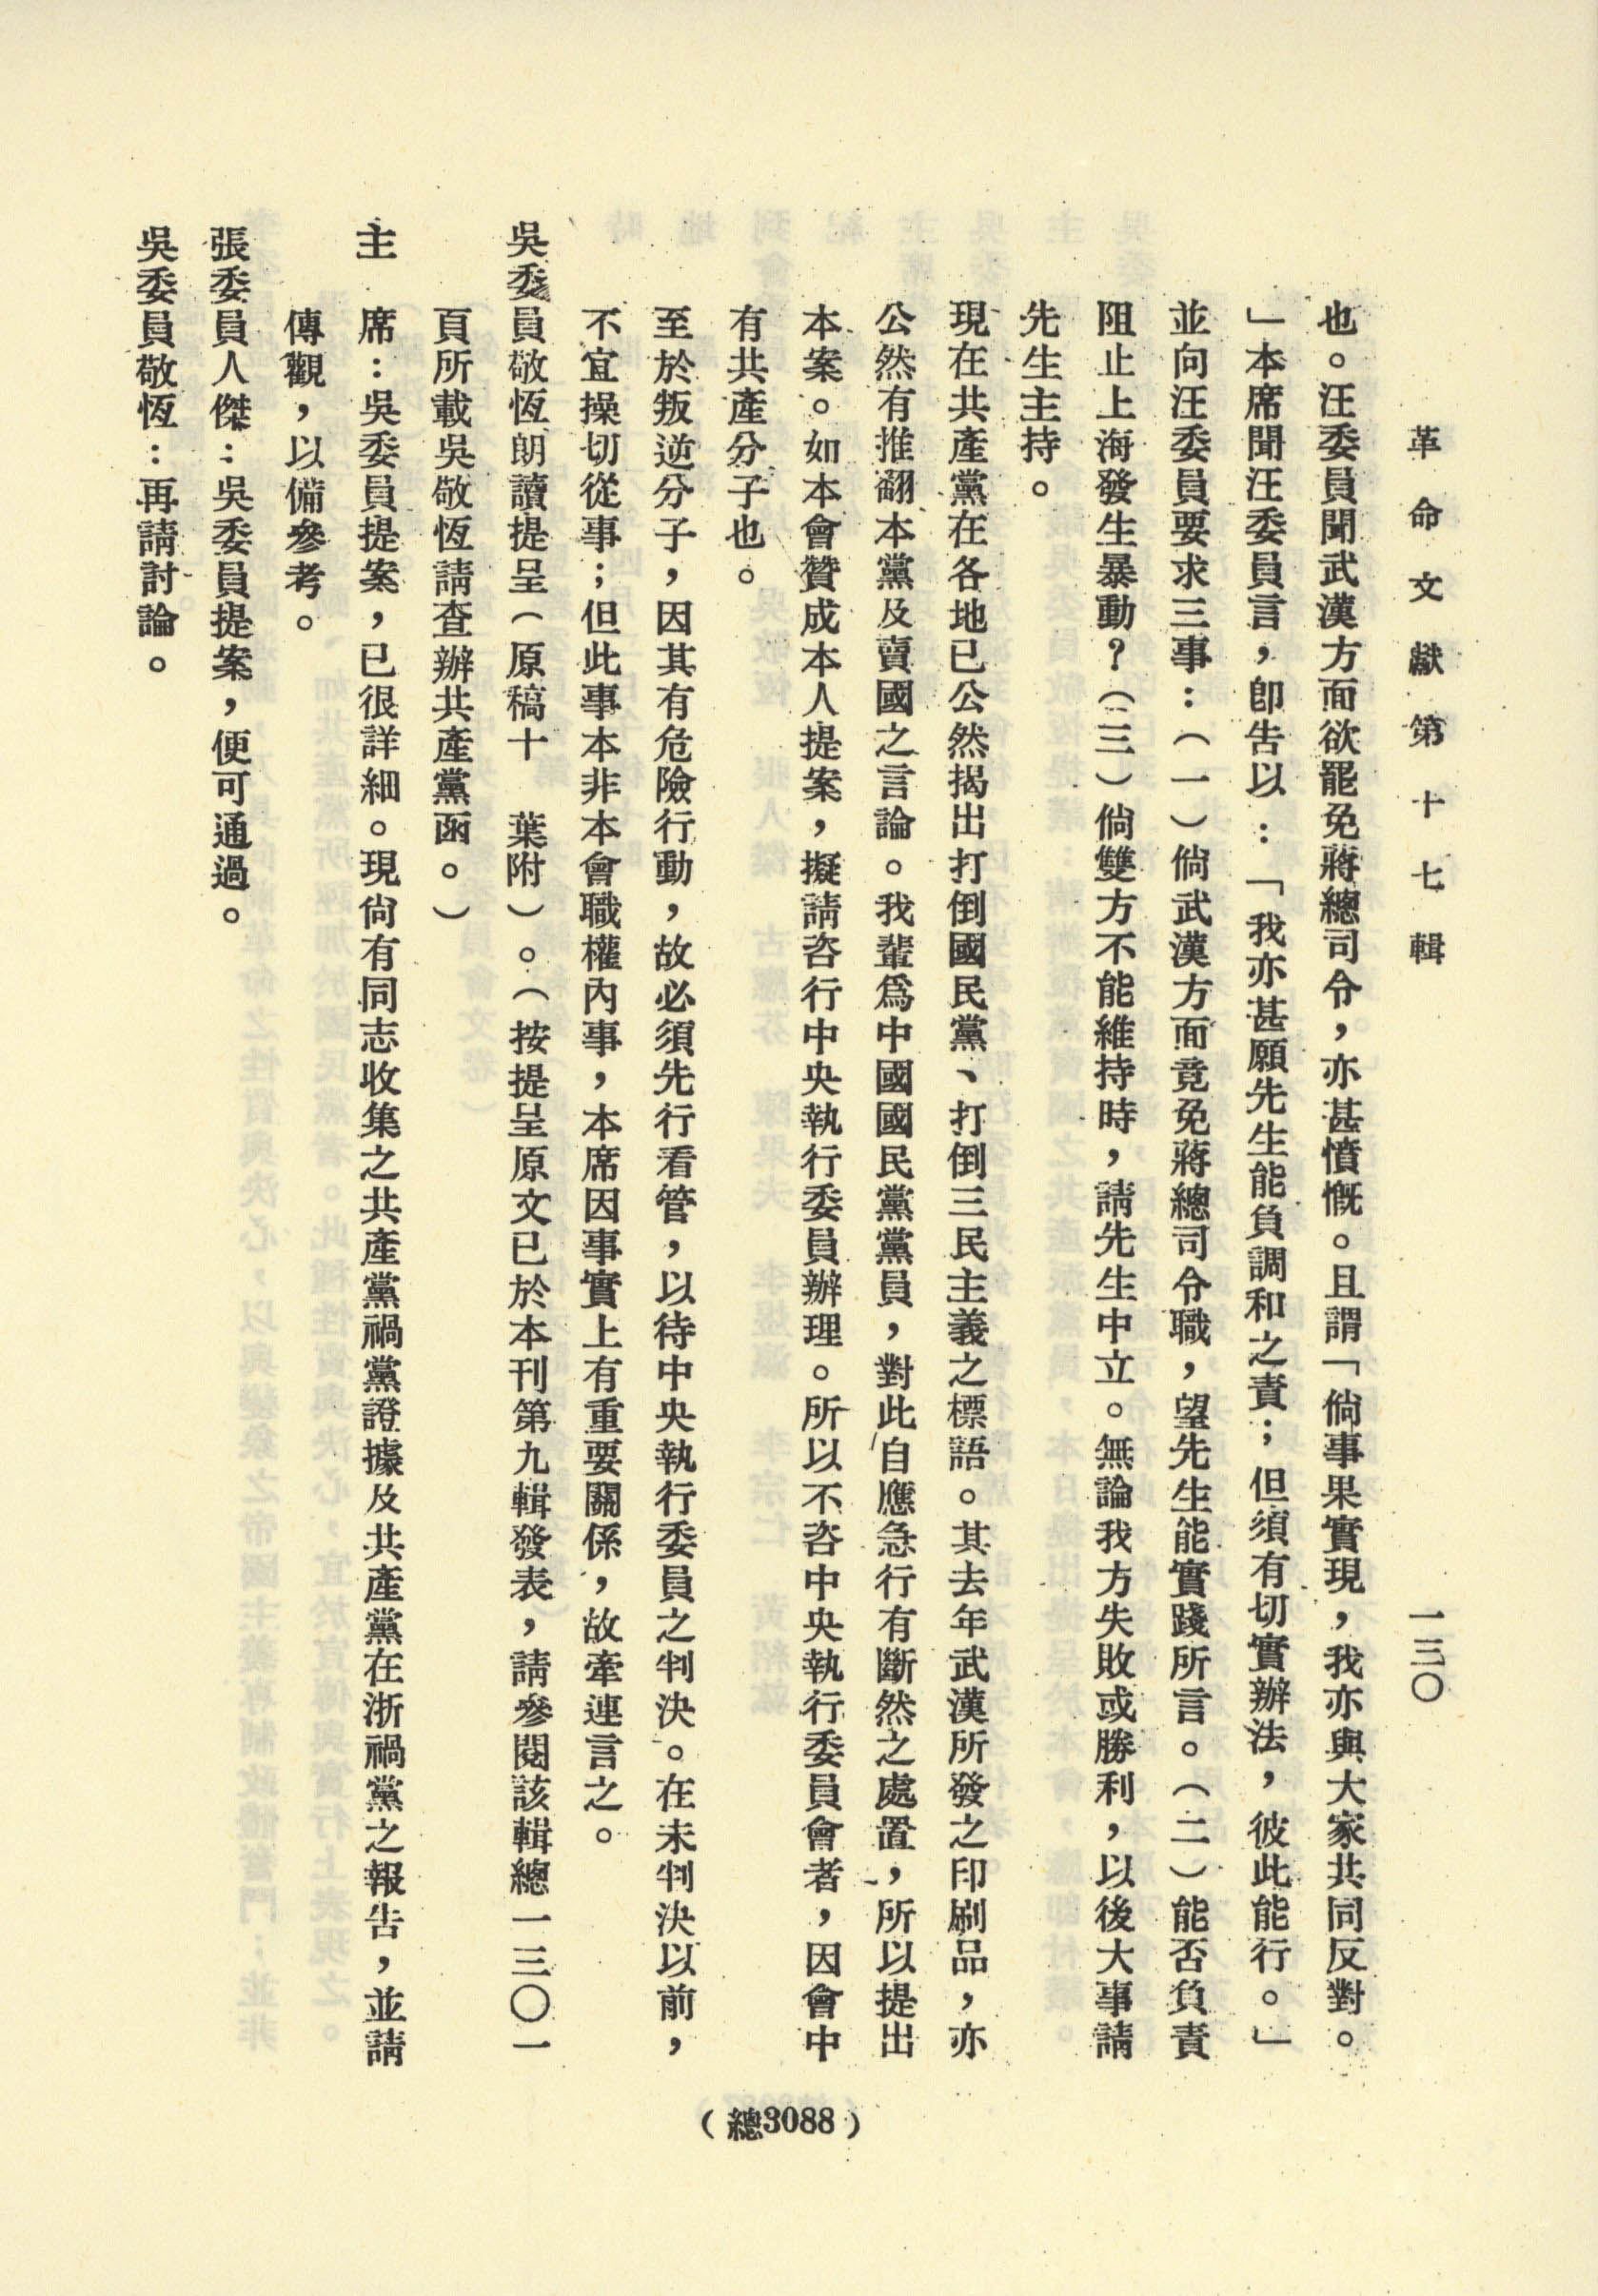 革命文獻第十七輯
一三〇
也。汪委員聞武漢方面欲罷免蔣總司令，亦甚憤慨。且謂「倘事果實現，我亦與大家共同反對。
」本席聞汪委員言，卽告以：「我亦甚願先生能負調和之責；但須有切實辦法，彼此能行。」
並向汪委員要求三事：（一）倘武漢方面竟免蔣總司令職，望先生能實踐所言。（二）能否負責
阻止上海發生暴動？（三）倘雙方不能維持時，請先生中立。無論我方失敗或勝利，以後大事請
先生主持。
現在共產黨在各地已公然揭出打倒國民黨、打倒三民主義之標語。其去年武漢所發之印刷品，亦
公然有推翻本黨及賣國之言論。我輩爲中國國民黨黨員，對此自應急行有斷然之處置，所以提出
本案。如本會贊成本人提案，擬請咨行中央執行委員辦理。所以不咨中央執行委員會者，因會中
有共產分子也。
至於叛逆分子，因其有危險行動，故必須先行看管，以待中央執行委員之判決。在未判決以前，
不宜操切從事；但此事本非本會職權內事，本席因事實上有重要關係，故牽連言之。
吳委員敬恆朗讀提呈（原稿十　葉附）。（按提呈原文已於本刊第九輯發表，請參閱該輯總一三〇一
頁所載吳敬恆請查辦共產黨函。）
主　席：吳委員提案，已很詳細。現尙有同志收集之共產黨禍黨證據及共產黨在浙禍黨之報告，並請
傳觀，以備參考。
張委員人傑：吳委員提案，便可通過。
吳委員敬恆：再請討論。
（總3088）